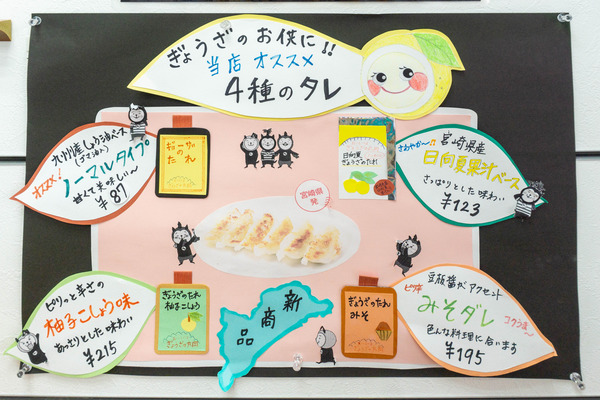 ぎょうざのお供に!!
当店オススメ
4種のタレ
九州産しょう油ベース
(ゴマ油入り)
オススメ!
ノーマルタイプ
甘くて美味しい〜
¥87
ギョーザの
たれ
日向夏
ぎょうざのたれ
宮崎県産
さわやか〜♪
日向夏果汁ベース
さっぱりとした味わい
¥123
宮崎県発
ピリッと辛さの
柚子こしょう味
あっさりとした味わい
¥215
ぎょうざのたれ
柚子こしょう
新商品
ぎょうざのたれ
みそ
豆板醤がアクセント
ピリ辛
みそダレ
コクうま〜
色んな料理に合います
¥195